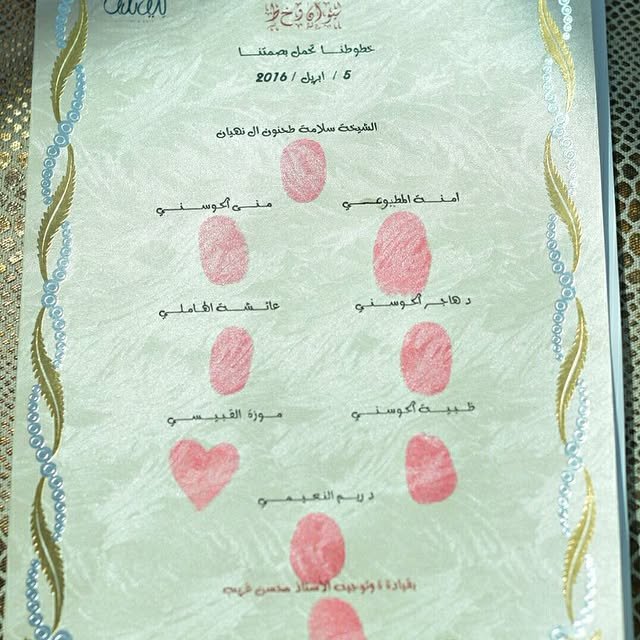 خطوطنا تحمل بصمتنا
5 / ابريل / 2016
الشيخة سلامة طحنون ال نهيان
امنة المطيوعي منى الحوسني
د هاجر الحوسني عائشة الهاملي
ظبية الحوسني موزة القبيسي
د ريم النعيمي
بقيادة و توجيه الاستاذ محسن غريب